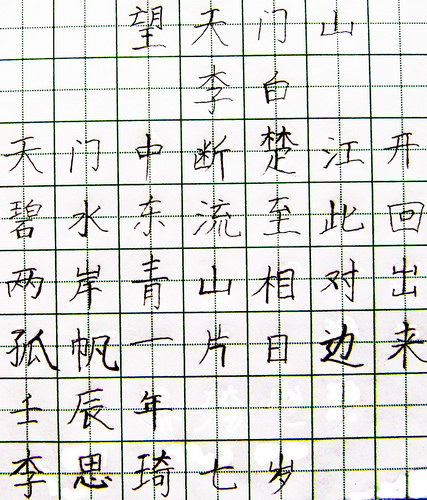 望天门山
李白
天门中断楚江开
碧水东流至此回
两岸青山相对出
孤帆一片日边来
壬辰年
李思琦七岁